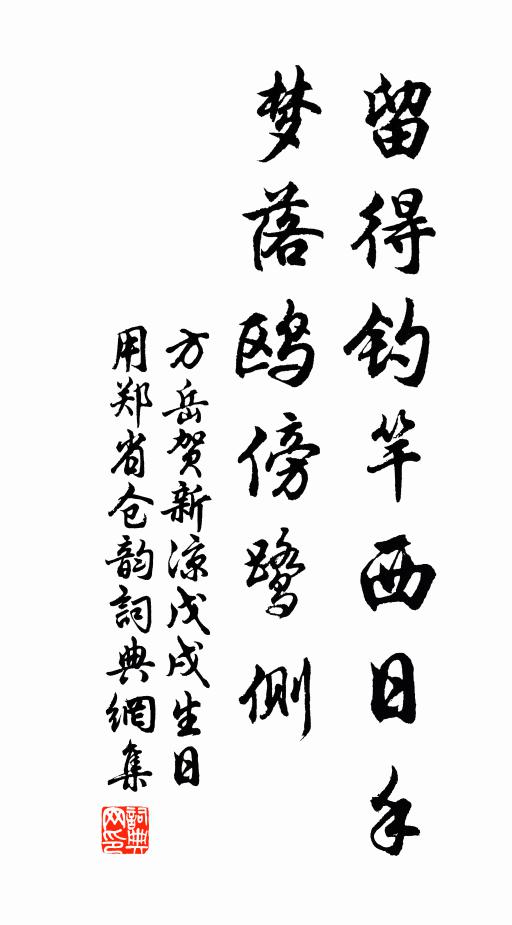 留得钓竿西日手
梦落鸥傍鹭侧
方岳贺新凉戊戌生日
用郑省仓韵詞典網集
詞典网印